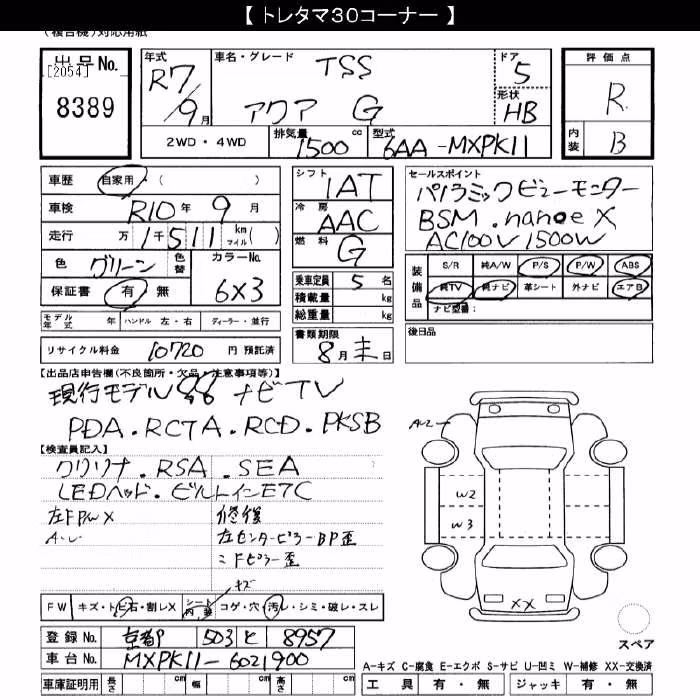 【 トレタマ30コーナー 】
(複合機)対応用紙
出品No.
[2054]
8389
年式 R7/9月
車名・グレード TSS
アクア G
ドア 5
形状 HB
2WD・4WD
排気量 1500 cc
型式 6AA-MXPK11
評価点 R
内装 B
車歴 自家用・( )
車検 R10年 9月
走行 万 1千511 km マイル( )
色 グリーン 色替
カラーNo. 6X3
保証書 有 無
モデル年式 年 ハンドル 左・右 ディーラー・並行
リサイクル料金 10720 円 預託済
シフト IAT
冷房 AAC
燃料 G
乗車定員 5 名
積載量 kg
総重量 kg
書類期限
8月末日
セールスポイント
パノラミックビューモニター
BSM.nanoeX
AC100V1500W
装備品 S/R 純A/W P/S P/W ABS
純TV 純ナビ 革シート 外ナビ エアB
ナビ型番:
後日品
【出品店申告欄(不良箇所・欠品・注意事項等)】
現行モデル ナビTV
PDA.RCTA.RCD.PKSB
【検査員記入】
クリソナ.RSA.SEA
LEDヘッド.ビルトインETC
左FPwX
修復
左センターピラーBP歪
ミFピラー歪
キズ
FW キズ・トビ石・割レX シート内装 コゲ・穴・汚レ・シミ・破レ・スレ
A-2
W2
W3
XX
スペア
登録No. 京都 503 と 8957
車台No. MXPK11-6021900
車庫証明用 長さ cm 幅 cm 高さ cm
A-キズ C-腐食 E-エクボ S-サビ U-凹ミ W-補修 XX-交換済
工具 有・無 ジャッキ 有・無